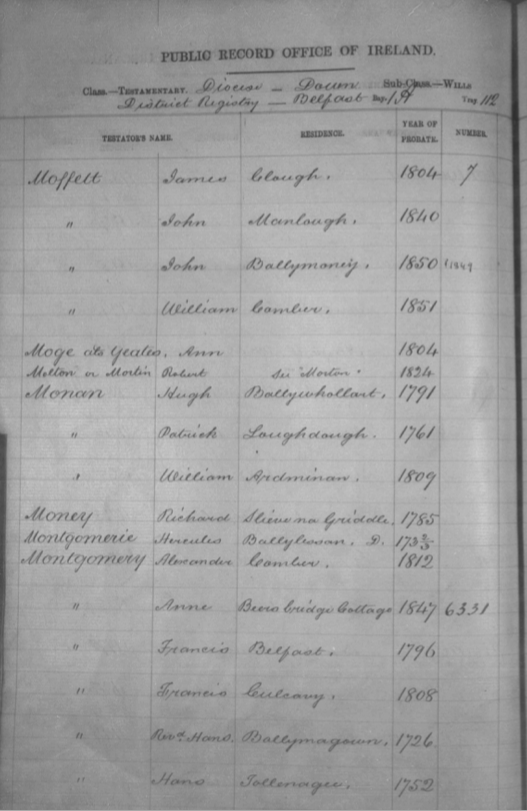 PUBLIC RECORD OFFICE OF IRELAND.
Class.—TESTAMENTARY. Diocese — Down Sub-Class.—WILLS
District Registry — Belfast 112
TESTATOR'S NAME. RESIDENCE. YEAR OF PROBATE. NUMBER.
Moffett James Clough. 1804 7
" John Manlough. 1840
" John Ballymoney. 1850 (1849
" William Comber. 1851
Moge als Yeates. Ann 1804
Molton or Mortin Robert See "Morton" 1824
Monan Hugh Ballywhollart. 1791
" Patrick Loughdough. 1761
" William Ardminan. 1809
Money Richard Slieve na Griddle. 1785
Montgomerie Hercules Ballylessan. D. 173
Montgomery Alexander Comber. 1812
" Anne Bevis Cridge Cottage 1847 6331
" Francis Belfast. 1796
" Francis Culcavy. 1808
" Revd. Hans. Ballymagown. 1726
" Hans Tollenagee. 1752